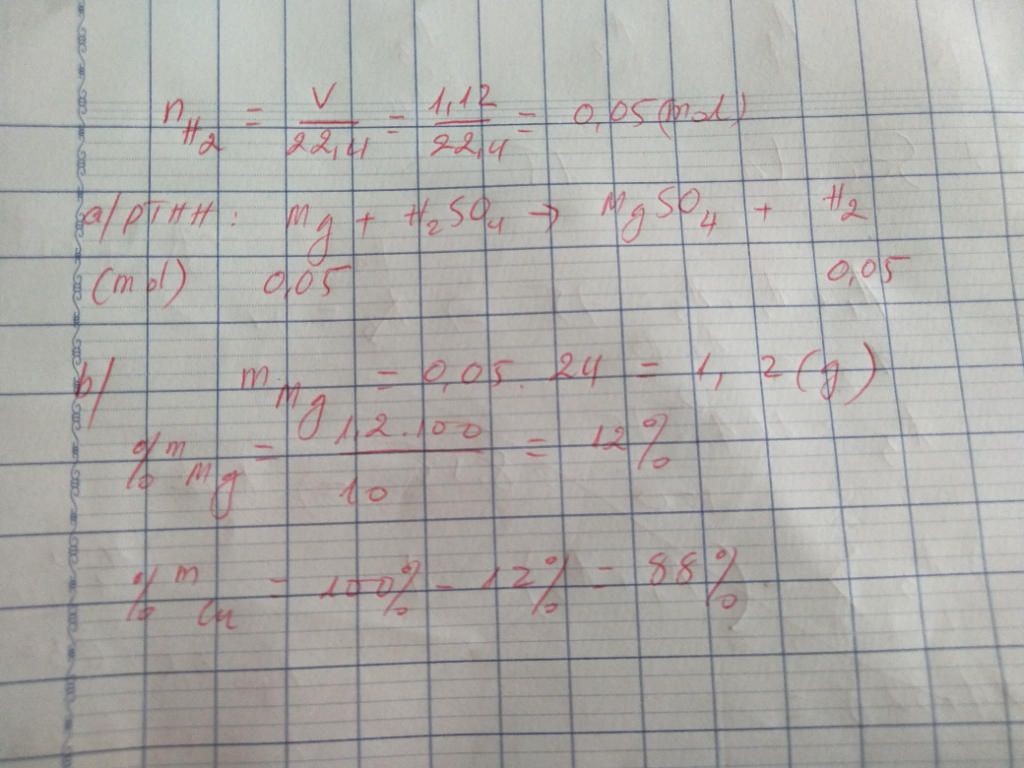 n_H₂ = V/22,4 = 1,12/22,4 = 0,05 (mol)
a/ PTHH : Mg + H₂SO₄ → MgSO₄ + H₂
(mol) 0,05 0,05
b/ m_Mg = 0,05 . 24 = 1,2 (g)
%m_Mg = 1,2.100/10 = 12%
%m_Cu = 100% - 12% = 88%